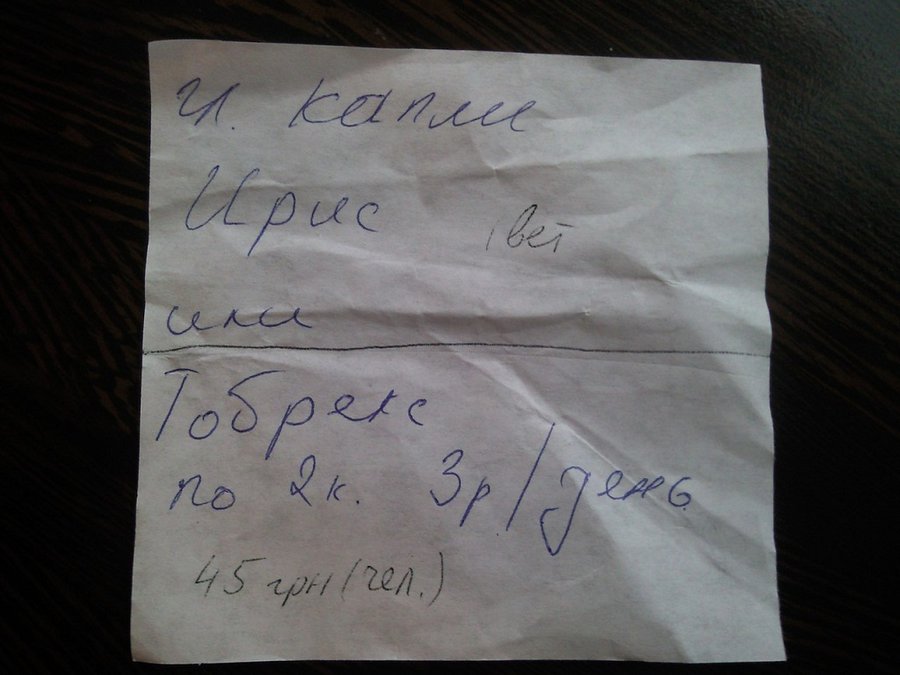 гл. капли
Ирис (вет
или
Тобрекс
по 2к. 3р/день
45 грн (чел.)